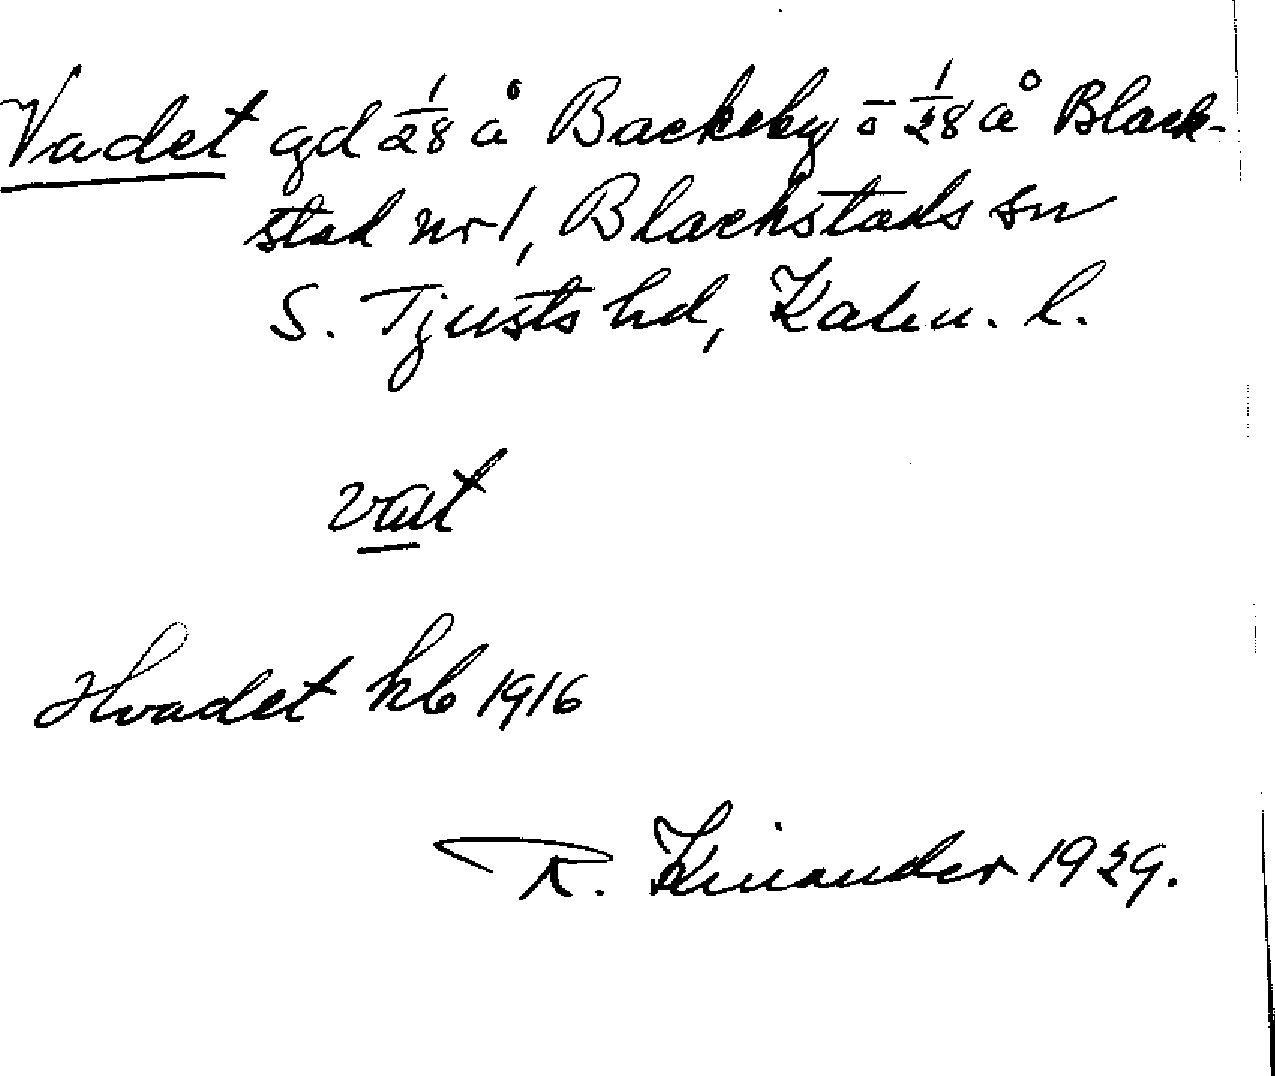 Vadet gd 1/28 å Backeby o 1/28 å Black-
stad nr 1, Blackstads sn
S. Tjusts hd, Kalm. l.
vat
Hvadet kb 1916
R. Kinander 1929.